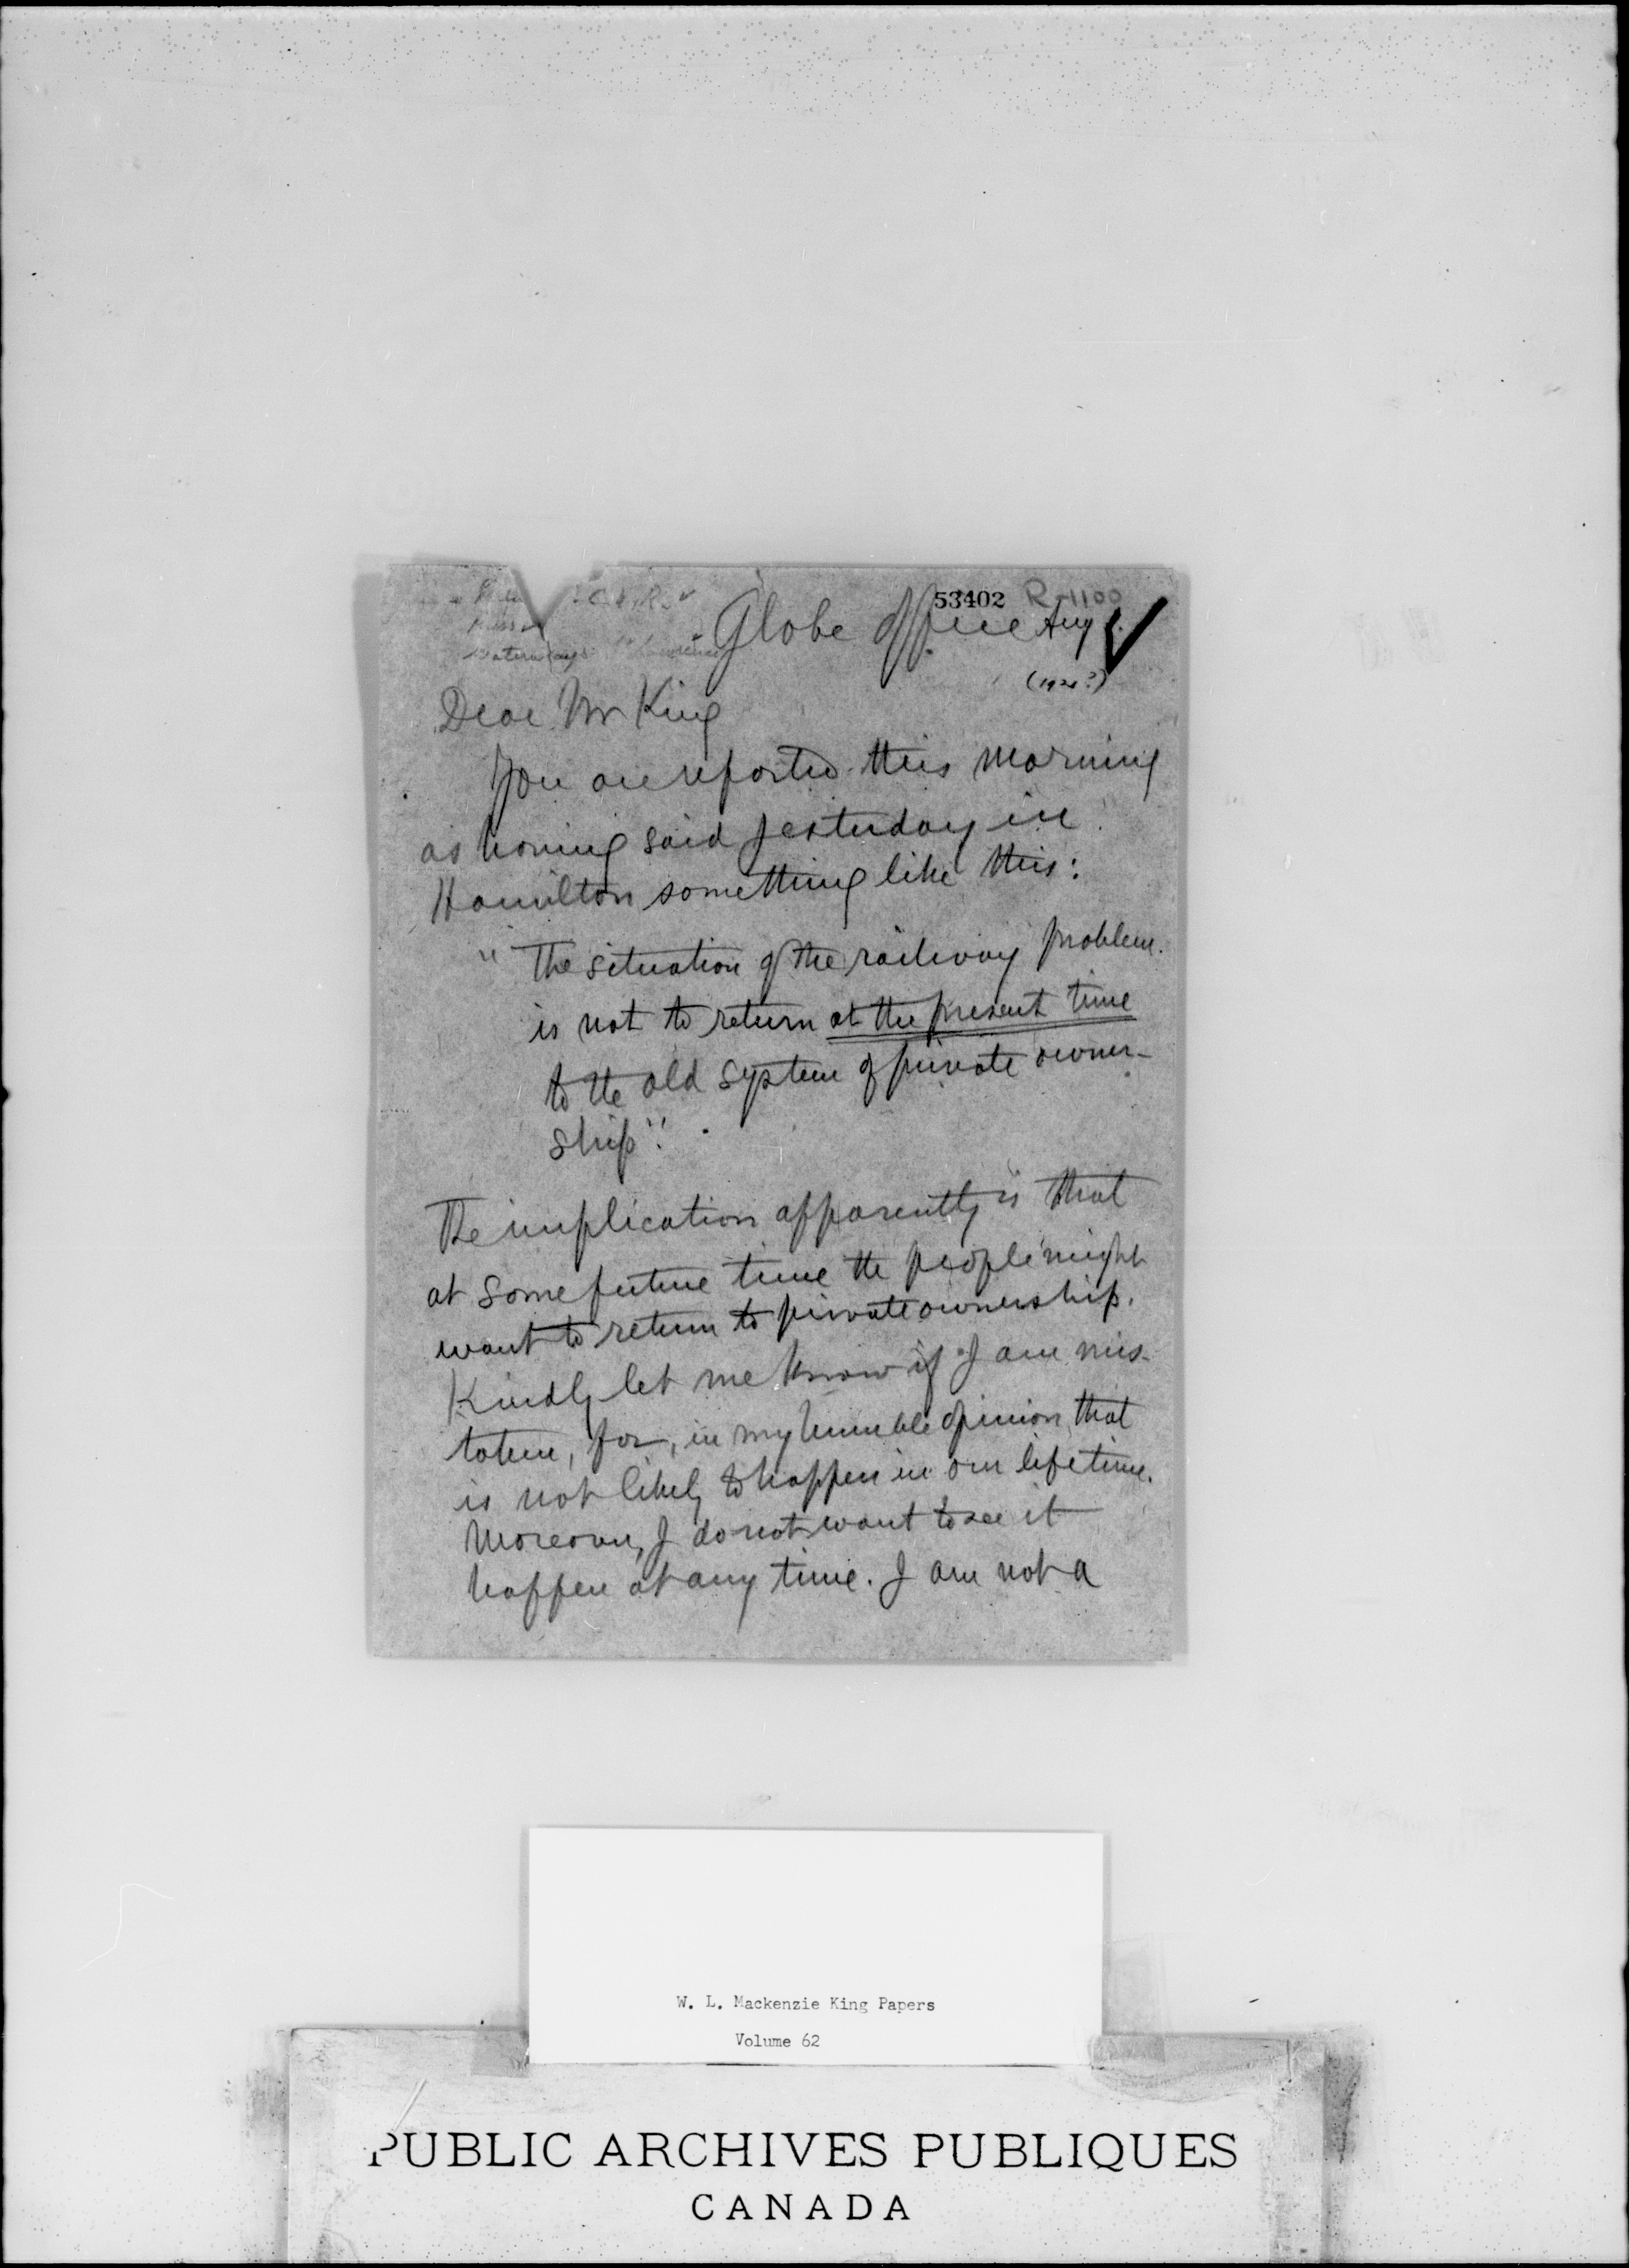 53402 R-1100
C.N.R.
Globe Office Aug
Waterways
(192?)
Dear Mr King
You are reported this morning
as having said yesterday in
Hamilton something like this:
" The situation of the railway problem
is not to return at the present time
to the old system of private owner-
ship".
The implication apparently is that
at some future time the people might
want to return to private ownership.
Kindly let me know if I am mis-
taken, for, in my humble opinion, that
is not likely to happen in our lifetime.
Moreover, I do not want to see it
happen at any time. I am not a
W. L. Mackenzie King Papers
Volume 62
PUBLIC ARCHIVES PUBLIQUES
CANADA